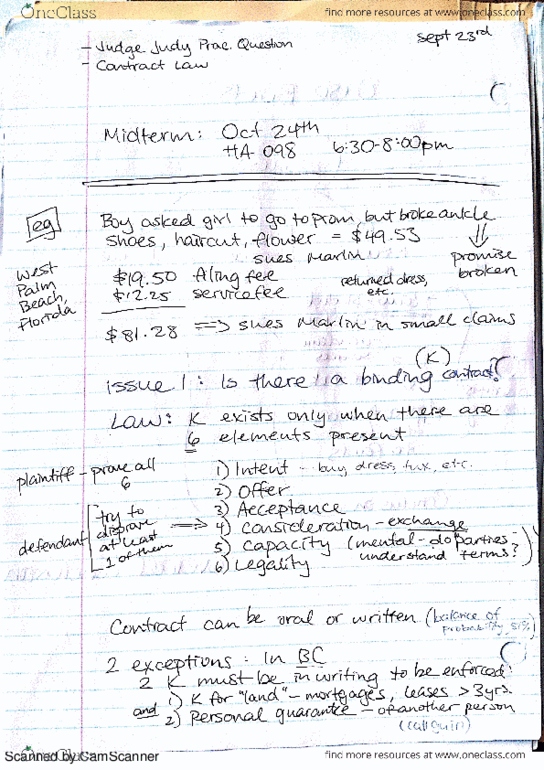 OneClass
find more resources at www.oneclass.com
sept 23rd
- Judge Judy Prac. Question
- Contract Law
Midterm: Oct 24th
HA 098 6:30-8:00pm
eg
Boy asked girl to go to prom, but broke ankle
shoes, haircut, flower = $49.53
sues Marlin
promise
broken
West
Palm
Beach,
Florida
$19.50 filing fee
$12.25 service fee
returned dress,
etc.
$81.28 => sues Marlin in small claims
(K)
issue 1: Is there a binding contract?
Law: K exists only when there are
6 elements present
plaintiff - prove all
6
1) Intent - buy, dress, tux, etc.
2) Offer
3) Acceptance
4) Consideration - exchange
5) Capacity (mental - do parties
understand terms?)
6) Legality
defendant
try to
disprove
at least
1 of them
=>
Contract can be oral or written (balance of
probability 51%)
2 exceptions: in BC
2 K must be in writing to be enforced:
1) K for "land" - mortgages, leases > 3yrs
and
2) Personal guarantee - of another person
Scanned by CamScanner
OneClass
find more resources at www.oneclass.com